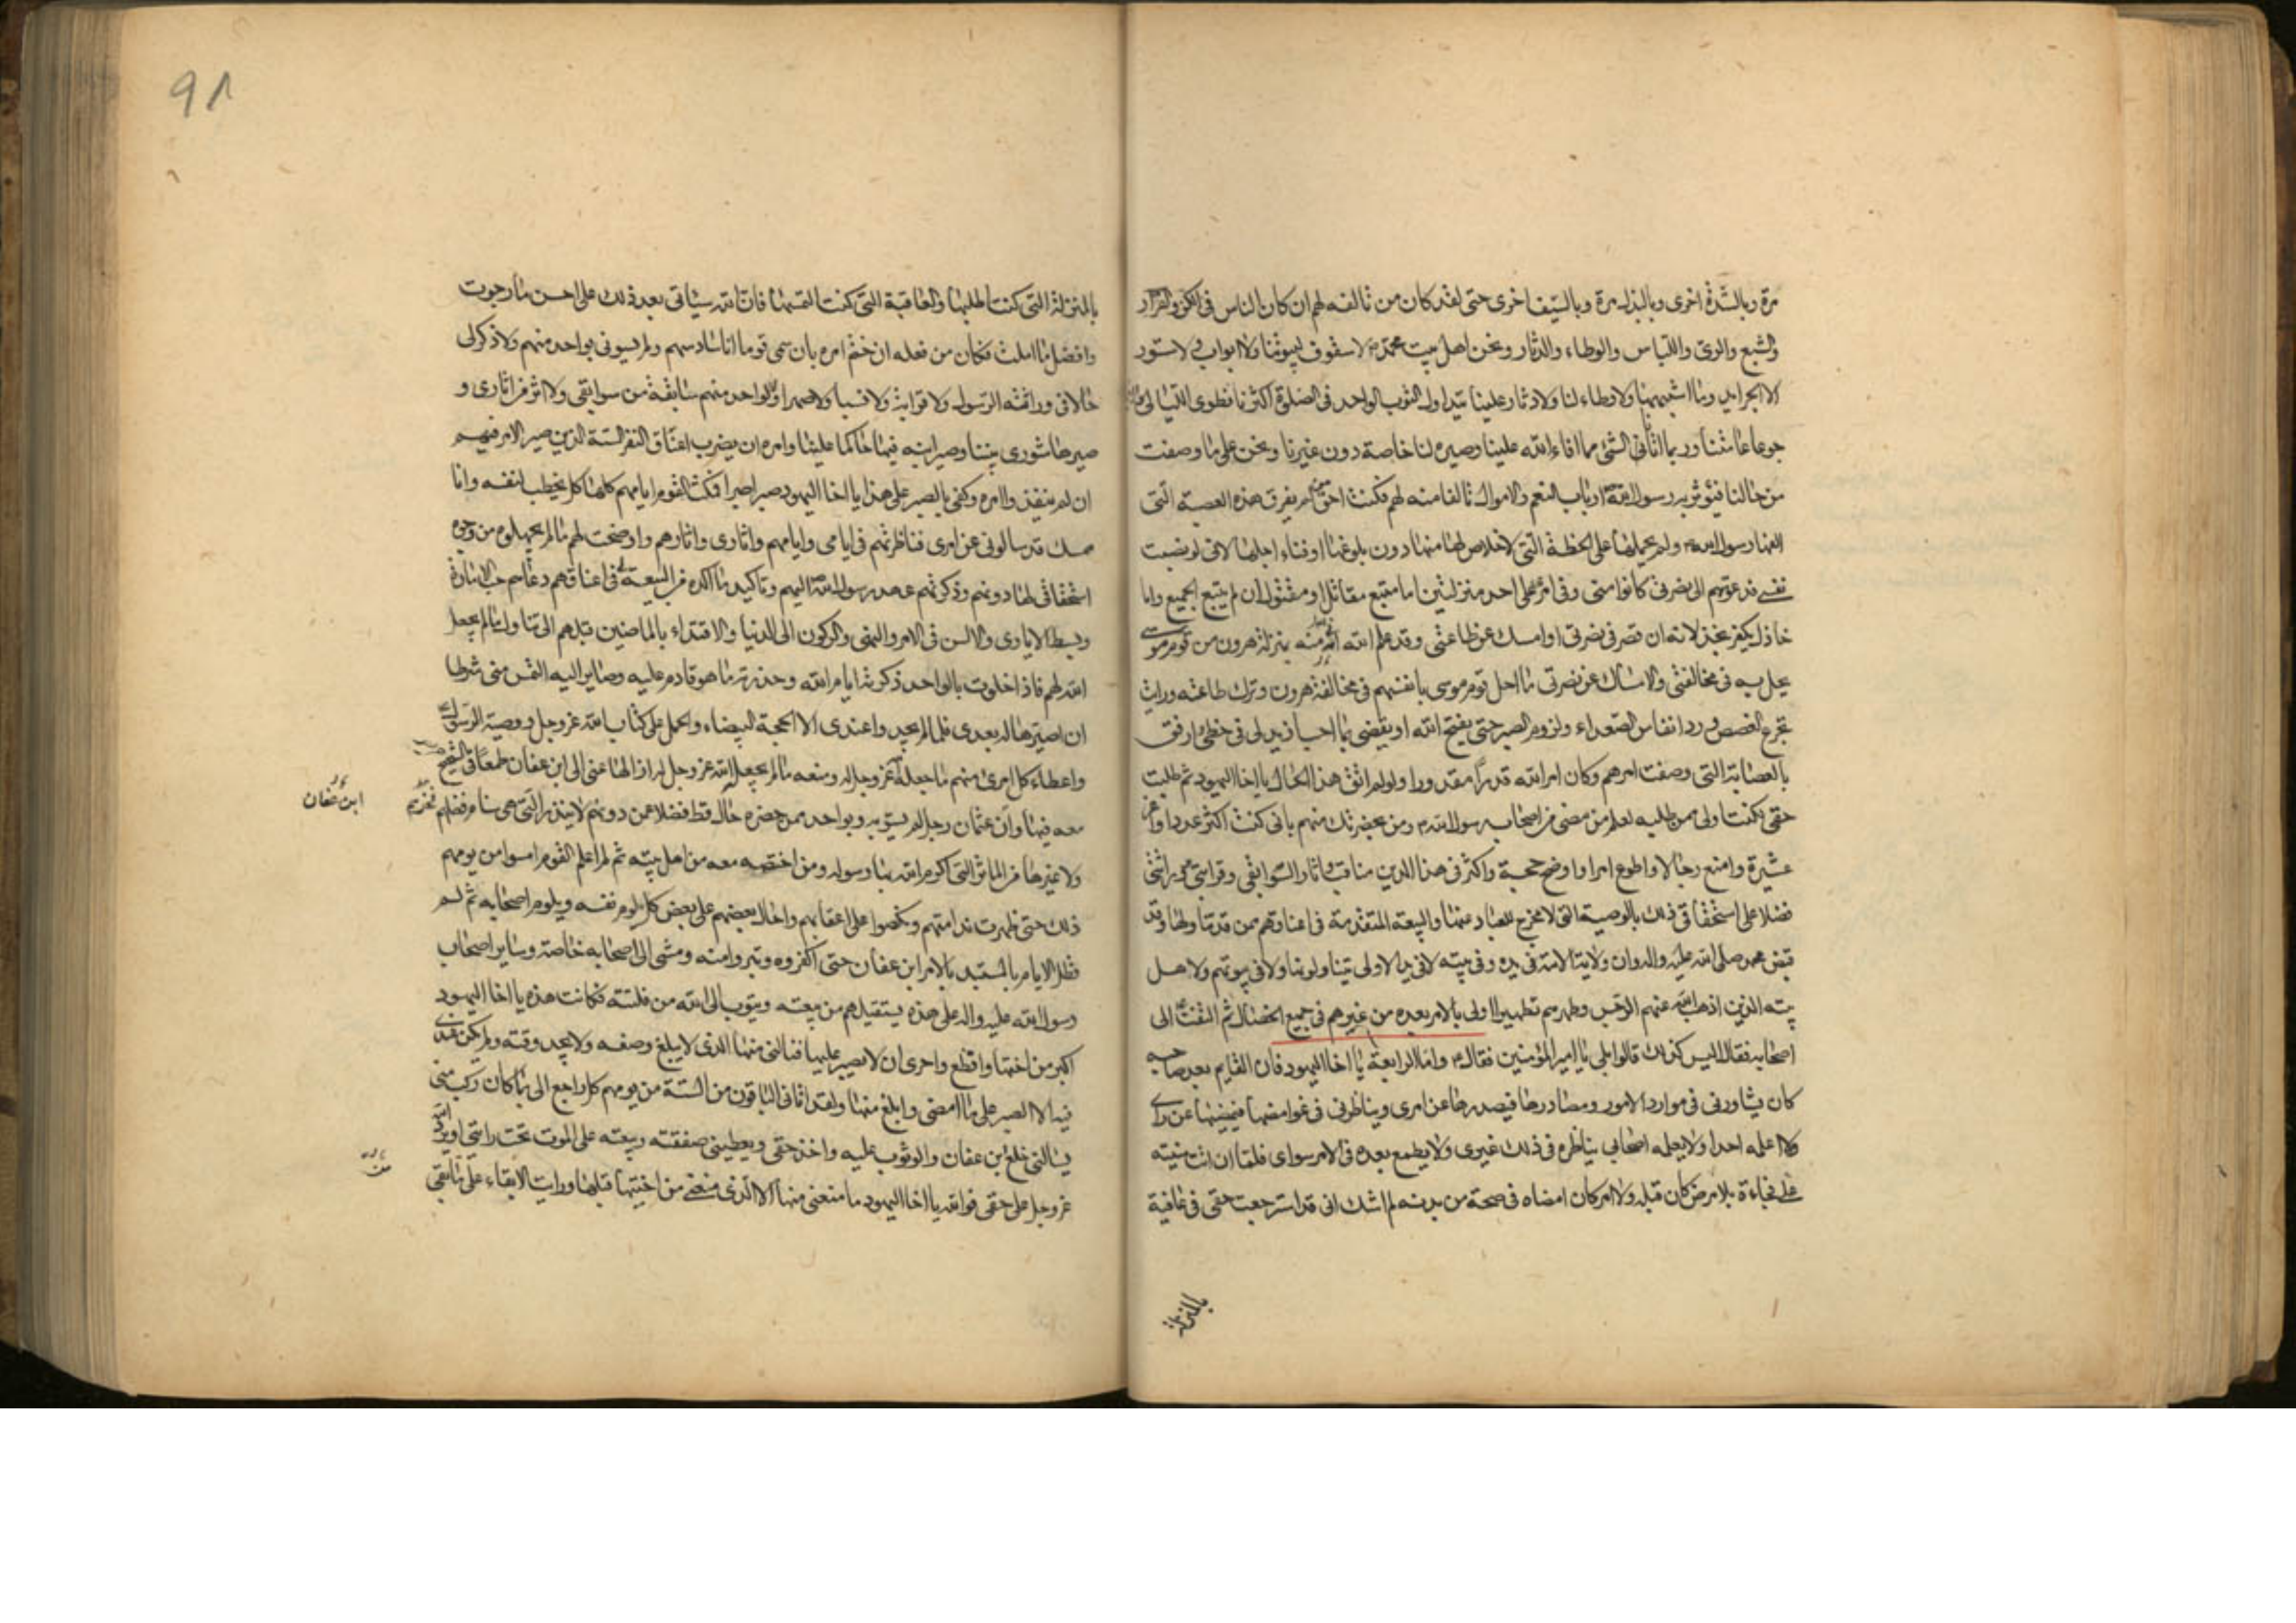 مرة وبالشدة اخرى وبالبذل مرة وبالسيف اخرى حتى لقد كان من تالفه لهم ان كان الناس في الكر والفرار
والشبع والرى واللباس والوطاء والدثار ونحن اهل بيت محمد لا سقوف لبيوتنا ولا ابواب ولا ستور
الا الجرايد وما اشبهها ولا وطاء لنا ولا دثار علينا يتداول الثوب الواحد في الصلوة اكثرنا نطوى الليالى
جوعا عامتنا وربما اتانا الشئ مما افاء الله علينا وصيره لنا خاصة دون غيرنا ونحن على ما وصفت
من حالنا فيؤثر به رسول الله ارباب النعم والاموال تالفا منه لهم فكنت احق من لم يفرق هذه العصبة التى
الفها رسول الله ولم يحملها على الخطة التى لا خلاص لها منها دون بلوغها او فناء اجلها لانى لو نصبت
نفسى فدعوتهم الى نصرتى كانوا منى وفى امرى على احد منزلتين اما متبع مقاتل او مقتول ان لم يتبع الجميع واما
خاذل يكفر بخذلانه ان قصر في نصرتى او امسك عن طاعتى وقد علم الله انى منه بمنزلة هرون من قوم موسى
يحل به في مخالفتى والامساك عن نصرتى ما احل قوم موسى بانفسهم في مخالفة هرون وترك طاعته ورايت
تجرع الغصص ورد انفاس الصعداء ولزوم الصبر حتى يفتح الله او يقضى بما احب ازيد لى في حظى وارفق
بالعصابة التى وصفت امرهم وكان امر الله قدرا مقدورا ولو لم اتق هذا الحال يا اخا اليهود ثم طلبت
حقى لكنت اولى ممن طلبه لعلم من مضى من اصحاب رسول الله ومن بحضرتك منهم بانى كنت اكثر عددا واعز
عشيرة وامنع رجالا واطوع امرا واوضح حجة واكثر في هذا الدين مناقب واثار السوابقى وقرابتى وراثتى
فضلا على استحقاقى ذلك بالوصية التى لا مخرج للعباد عنها والبيعة المتقدمة في اعناقهم ممن قد تناولها وقد
قبض محمد صلى الله عليه واله وان ولاية الامة في يده وفى بيته لا في يد الاولى تناولوها ولا في بيوتهم ولاهل
بيته الذين اذهب الله عنهم الرجس وطهرهم تطهيرا اولى بالامر بعده من غيرهم في جميع الخصال ثم التفت الى
اصحابه فقال اليس كذلك قالوا بلى يا امير المؤمنين فقال واما الرابعة يا اخا اليهود فان القايم بعد صاحبه
كان يشاورنى في موارد الامور ومصادرها فيصدرها عن امرى ويناظرنى في غوامضها فيمضيها عن راى
لا اعلمه احدا ولا يعلمه اصحابى يناظره في ذلك غيرى ولا يطمع بعده في الامر سواى فلما ان اتت منيته
على فجاءة بلا مرض كان قبله ولا امر كان امضاه في صحة من بدنه لم اشك انى قد استرجعت حقى في عافية
بالمنزلة
٩٨
بالمنزلة التى كنت اطلبها والعاقبة التى كنت التمسها فان الله سياتى بعد ذلك على احسن ما رجوت
وافضل ما املت فكان من فعله ان ختم امره بان سمى قوما انا سادسهم ولم يسونى بواحد منهم ولا ذكر لى
حالا في وراثة الرسول ولا قرابة ولا نسبا ولا صهرا ولا لواحد منهم سابقة من سوابقى ولا اثر من اثارى و
صيرها شورى بيننا وصير ابنه فيها حاكما علينا وامره ان يضرب اعناق النفر الستة الذين صير الامر فيهم
ان لم ينفذوا امره وكفى بالصبر على هذا يا اخا اليهود صبرا فمكث القوم ايامهم كلها كل يخطب لنفسه وانا
ممسك قد سالونى عن امرى فناظرتهم في ايامى وايامهم واثارى واثارهم واوضحت لهم ما لم يجهلوه من وجوه
استحقاقى لها دونهم وذكرتهم عهد رسول الله اليهم وتاكيد ما اكده من البيعة لى في اعناقهم دعاهم حب الامارة
وبسط الايادى والالسن في الامر والنهى والركون الى الدنيا والاقتداء بالماضين قبلهم الى تناول ما لم يجعل
الله لهم فاذا خلوت بالواحد ذكرته ايام الله وحذرته ما هو قادم عليه وصاير اليه التمس منى شرطا
ان اصيرها له بعدى فلما لم يجدوا عندى الا المحجة البيضاء والحمل على كتاب الله عز وجل ووصية الرسول
واعطاء كل امرئ منهم ما جعله الله عز وجل له ومنعه ما لم يجعل الله عز وجل له ازالها عنى الى ابن عفان طمعا في الشحيح
معه فيها وابن عثمان رجل لم يستو به وبواحد ممن حضره حال قط فضلا عمن دونهم لا ببدر التى هى سنام فخرهم
ابن عفان
ولا غيرها من الماثر التى اكرم الله بها رسوله ومن اختصه معه من اهل بيته ثم لم اعلم القوم امسوا من يومهم
ذلك حتى ظهرت ندامتهم ونكصوا على اعقابهم واحال بعضهم على بعض كل يلوم نفسه ويلوم اصحابه ثم لم
تطل الايام بالمستبد بالامر ابن عفان حتى اكفروه وتبروا منه ومشى الى اصحابه خاصة وساير اصحاب
رسول الله عليه واله على هذه يستقيلهم من بيعته ويتوب الى الله من فلتته فكانت هذه يا اخا اليهود
اكبر من اختها واقطع واحرى ان لا يصبر عليها فنالنى منها الذى لا يبلغ وصفه ولا يحد وقته ولم يكن عندى
فيه الا الصبر على ما امضى وابلغ منها ولقد اتانى الباقون من الستة من يومهم كل راجع الى ما كان ركب منى
يسالنى خلع ابن عفان والوثوب عليه واخذ حقى ويعطينى صفقته وبيعته على الموت تحت رايتى او يرد الله
عز وجل على حقى فوالله يا اخا اليهود ما منعنى منها الا الذى منعنى من اختيها قبلها ورايت الابقاء على ما بقى